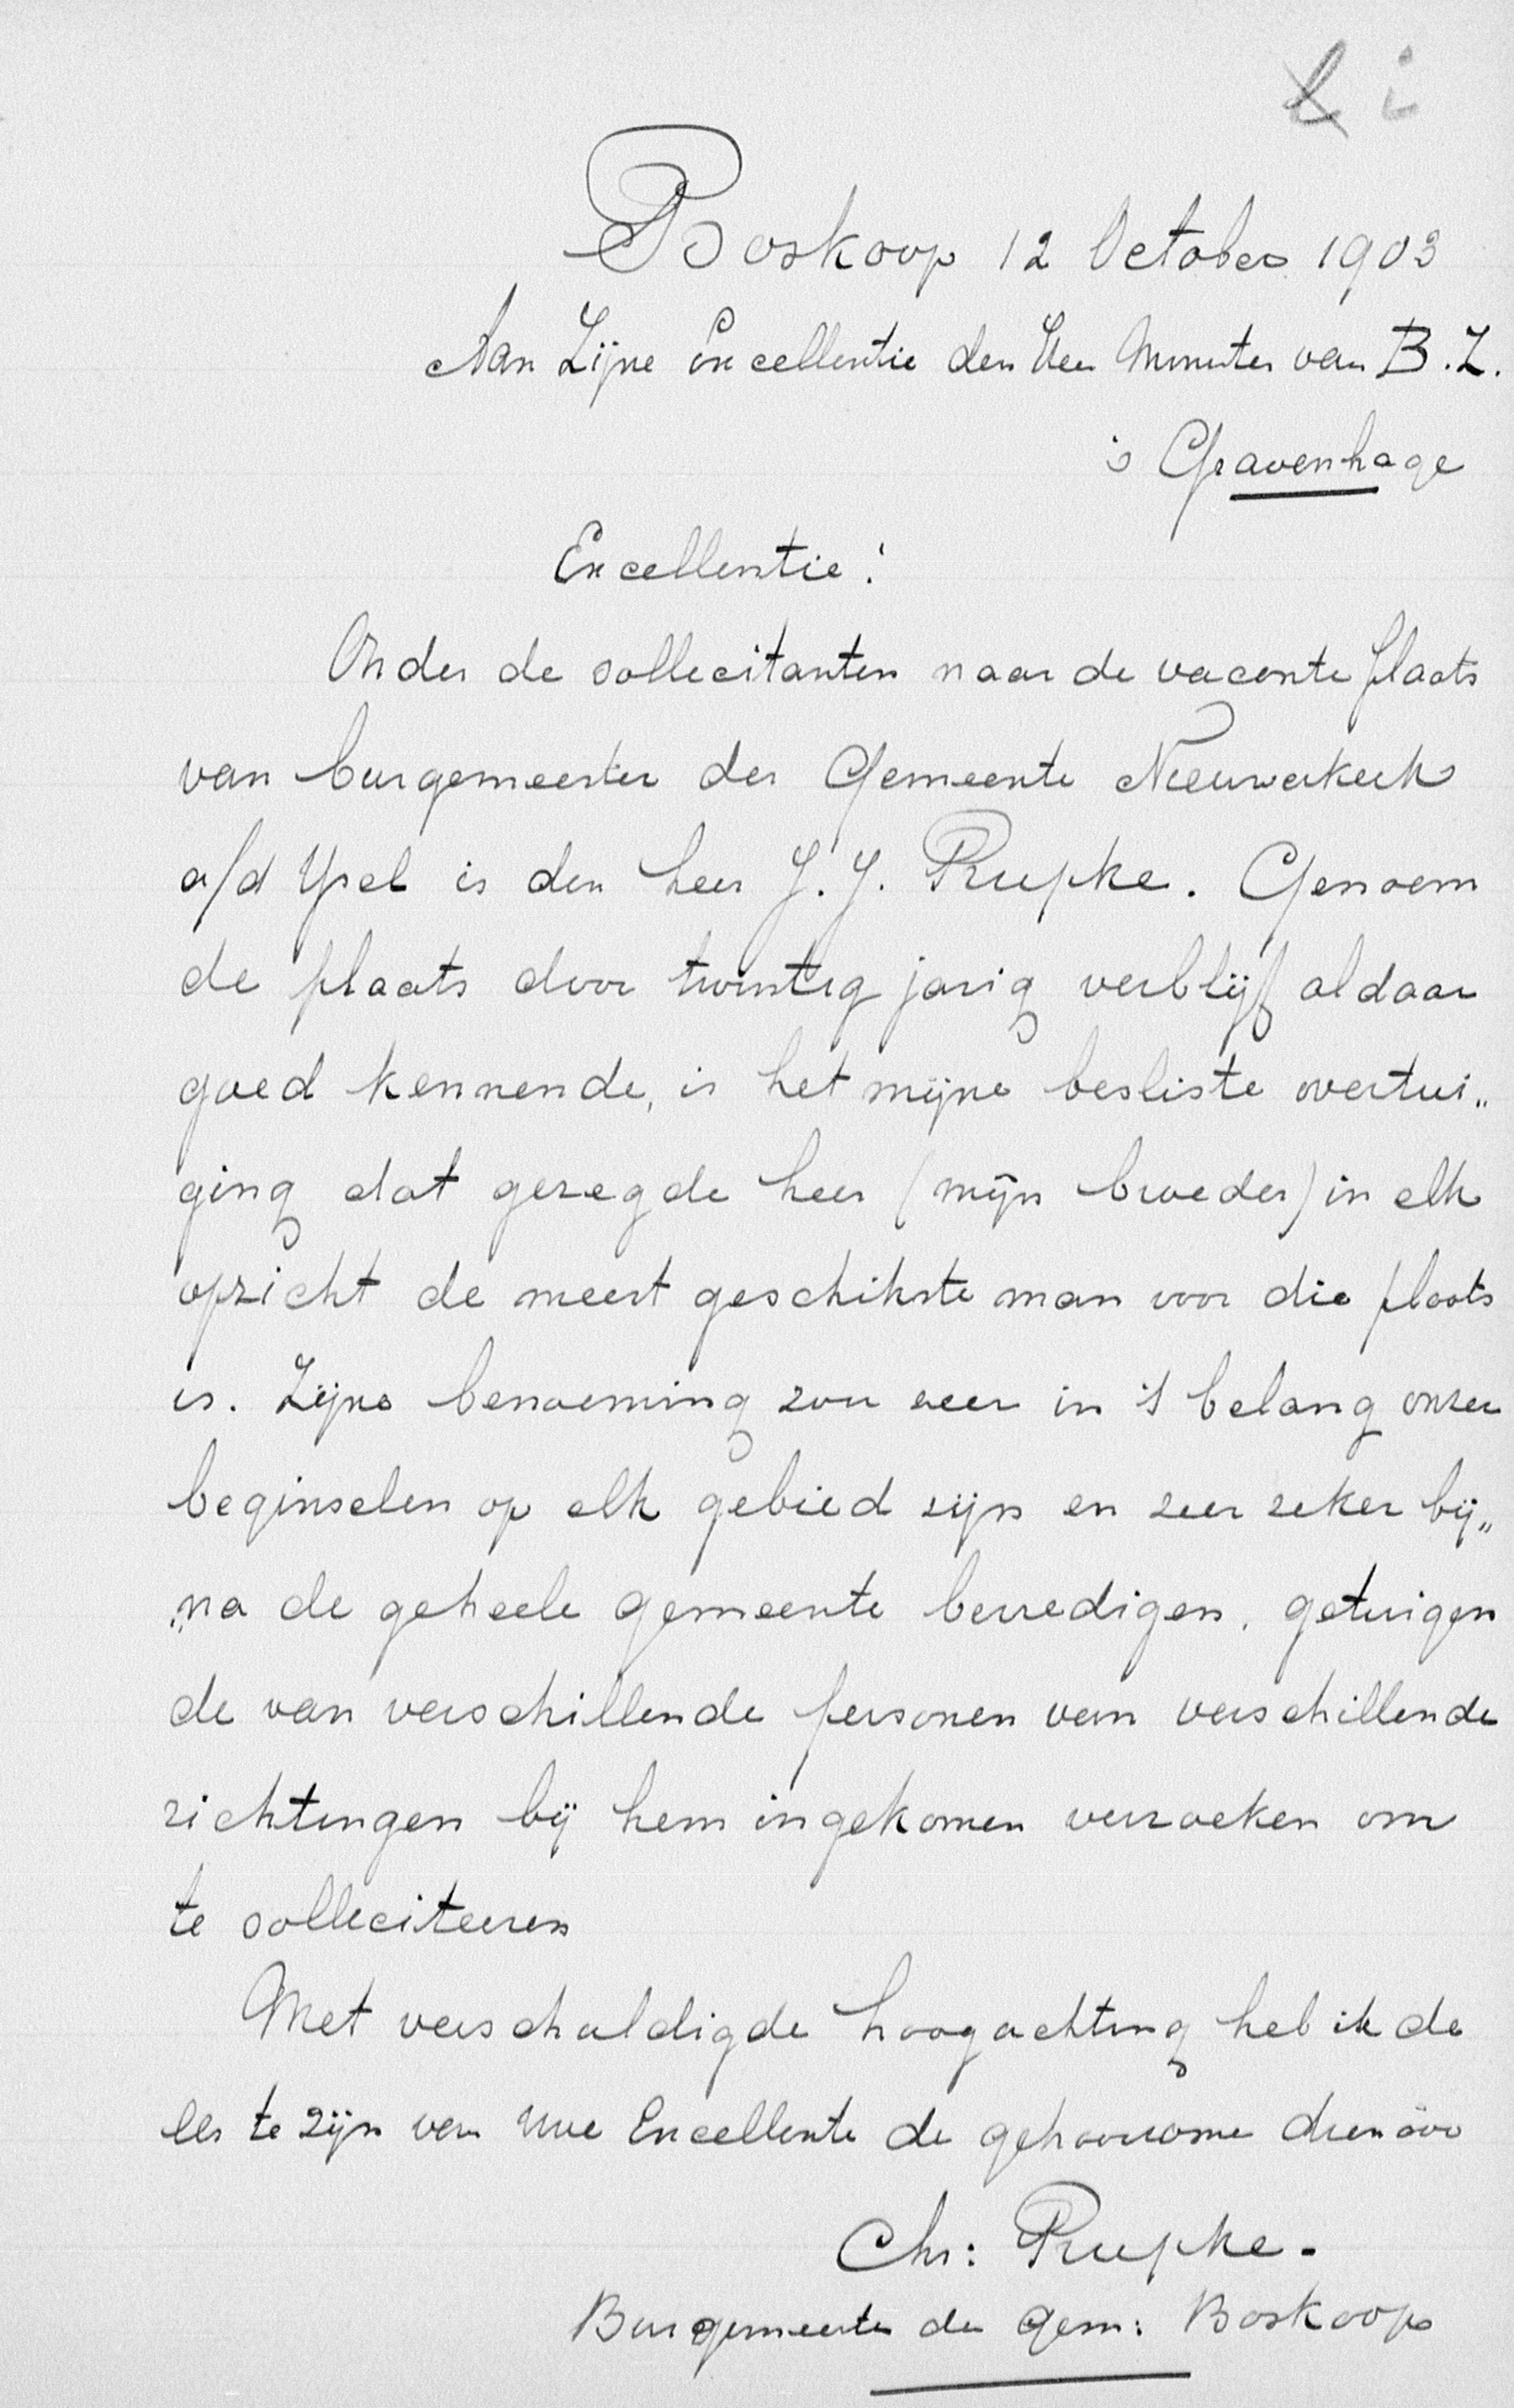 Boskoop 12 October 1903
Aan Zijne Excellentie den Heer Minister van B.Z.
's Gravenhage
Excellentie!
Onder de sollicitanten naar de vacante plaats
van burgemeester der Gemeente Nieuwerkerk
a/d Ysel is den heer J. J. Rupke. Genoem
de plaats door twintig jarig verblijf aldaar
goed kennende, is het mijne besliste overtui„
ging dat gezegde heer (mijn broeder) in elk
opzicht de meest geschikste man voor die plaats
is. Zijne benoeming zou zeer in 't belang onzer
beginselen op elk gebied zijn en zeer zeker bij„
„na de geheele gemeente bevredigen, getuigen
de van verschillende personen van verschillende
richtingen bij hem ingekomen verzoeken om
te solliciteeren
Met verschuldigde hoogachting heb ik de
eer te zijn van Uwe Excellentie de gehoorzame dienaar
Chr: Rupke.
Burgemeester der Gem: Boskoop